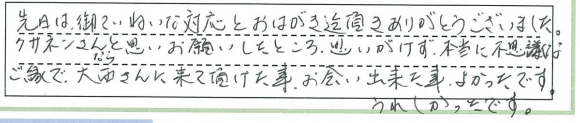 先日は、御ていねいな対応とおはがき迄頂きありがとうございました。
クサネンさんなら
と思いお願いしたところ、思いがけず本当に不思議な
ご縁で、大西さんに来て頂けた事、お会い出来た事、よかったです。
うれしかったです。